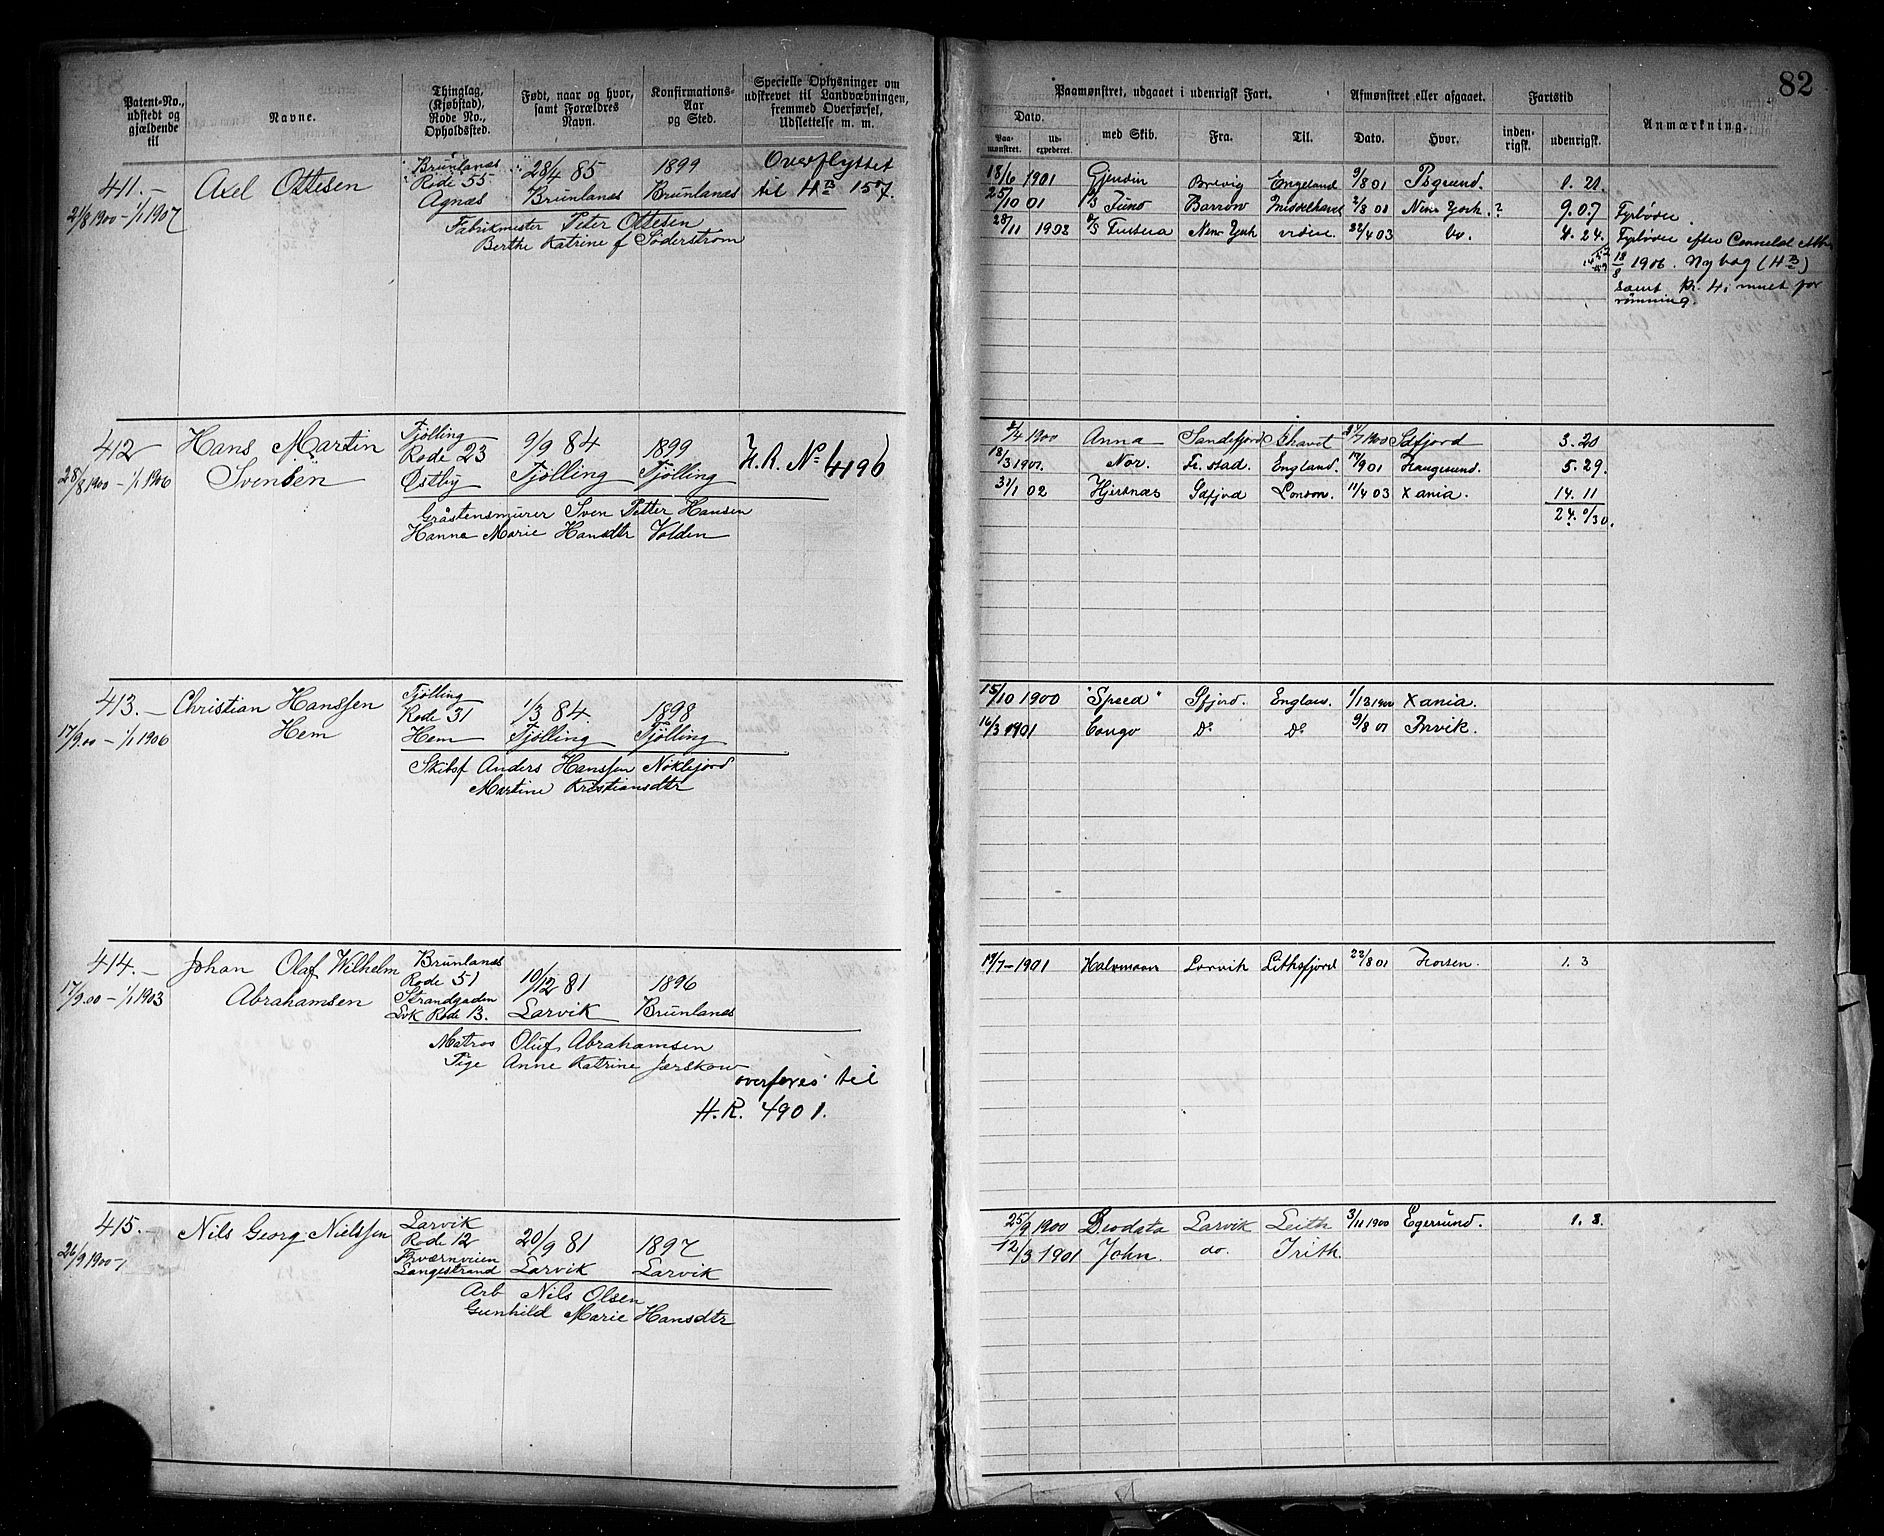 82
Patent-No., udstedt og gjældende til
Navne.
Thinglag, (Kjøbstad), Rode No., Opholdssted.
Født, naar og hvor, samt Forældres Navn.
Konfirmations- Aar og Sted.
Specielle Oplysninger om udskrevet til Landvæbningen, fremmed Overførsel, Udslettelse m. m.
Paamønstret, udgaaet i udenrigsk Fart.
Afmønstret eller afgaaet.
Fartstid
Anmærkning.
Dato.
Paa- mønstret.
Ud- expederet.
med Skib.
Fra.
Til.
Dato.
Hvor.
inden- rigsk.
udenrigsk.
411.—
21/8 1900 – 1/1 1907
Axel Ottesen
Brunlanes
Rode 55
Agnæs
28/4 85
Brunlanes
1899
Brunlanes
Overflyttet
til HB 1507.
Fabrikmester Peter Ottesen
Berthe Katrine f Söderstrom
18/6 1901 Gjendin Brevig Engeland 9/8 01 Psgrund. 1. 21.
25/10 01 S/S Juno Barrow Middelhavet 2/8 01 New York.? 9.07 Fyrbøder.
28/11 1902 New York videre 22/4 03 do. 4. 24. Fyrbøder efter
18/8 1906. Ny bog (HB)
samt Kr. 4 i mulct for
rømning.
412
28/8 1900 – 1/1 1906
Hans Martin
Svensen
Tjølling
Rode 23
Østby
9/9 84
Tjølling
1899
Tjølling
H.R. No 4196
Gråstensmurer Sven Petter Hansen
Hanne Marie Hansdtr Volden
5/4 1900 Anna Sandefjord Ishavet 21/7 1900 Sdfjord 3. 20
18/3 1901 Nor. Fr.stad. England. 17/9 01 Haugesund. 5. 29.
31/1 02 Hjertnæs Sdfjord London. 11/4 03 Xania. 14. 11
24. 0/30.
413.—
17/9.00 – 1/1 1906
Christian Hanssen
Hem
Tjølling
Rode 31
Hem
1/3 84.
Tjølling
1898
Tjølling
Skibsf Anders Hanssen Noklejord
Martine Kristiansdtr
15/10 1900 "Speed" Sfjord. Englan. 1/12 1900 Xania.
16/3 1901 Congo Do Do 9/8 01 Ørvik.
414.—
17/9.00 – 1/1 1903
Johan Olaf Wilhelm
Abrahamsen
Brunlanes
Rode 51
Strandgaden
Lvk Rode 13.
10/12 81
Larvik
1896
Brunlanes
Matros Oluf Abrahamsen
Pige Anne Katrine Jærskow
overføres til
H.R. 4901.
19/7–1901 Halvmaan Larvik Lithsfjord 22/8 01 Horsen. 1. 3
415.—
26/9 1900 –
Nils Georg Nielssen
Larvik
Rode 12
Kværnveien
Langestrand
20/9 81
Larvik
1897
Larvik
Arb Nils Olsen
Gunhild Marie Hansdtr
25/9 1900 Deodata Larvik Leith 3/11 1900 Egersund. 1. 8.
12/3 1901 John. do. Irith.